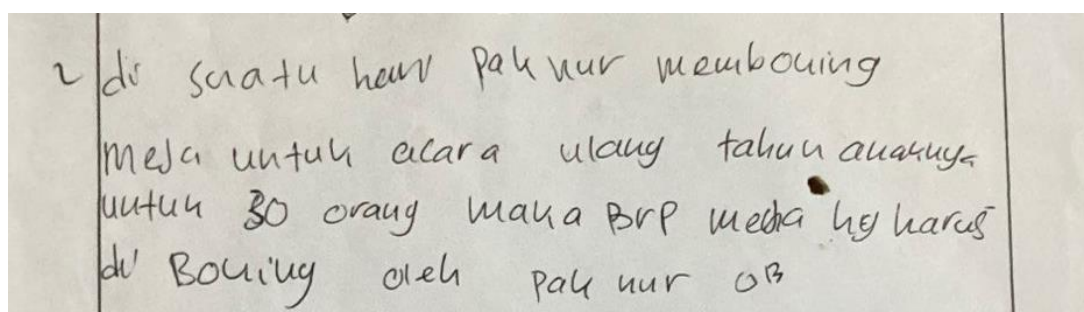 2 di suatu hari Pak nur membouing
meja untuk acara ulang tahun anaknya
untuk 30 orang maka BrP meja yg harus
di Bouing oleh pak nur OB